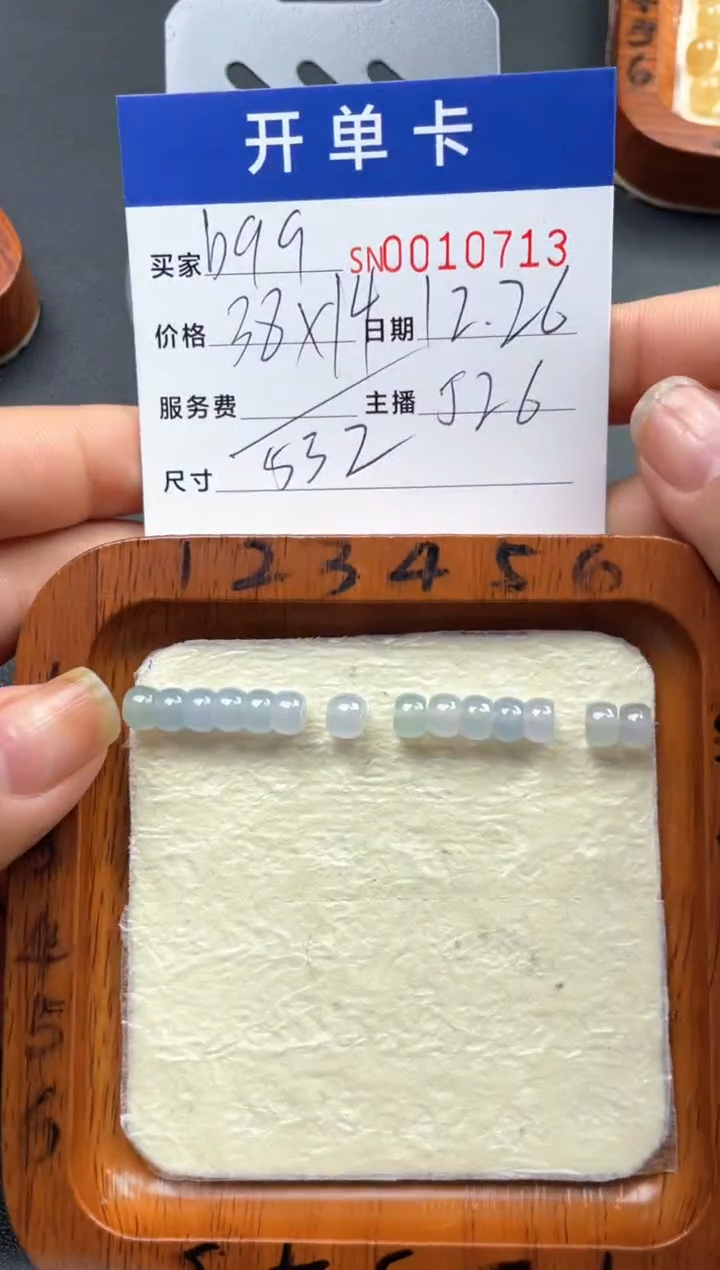 开单卡
买家 b99 SN0010713
价格 38X14 日期 12.26
服务费 主播 J26
尺寸 532
1 2 3 4 5 6
4
5
6